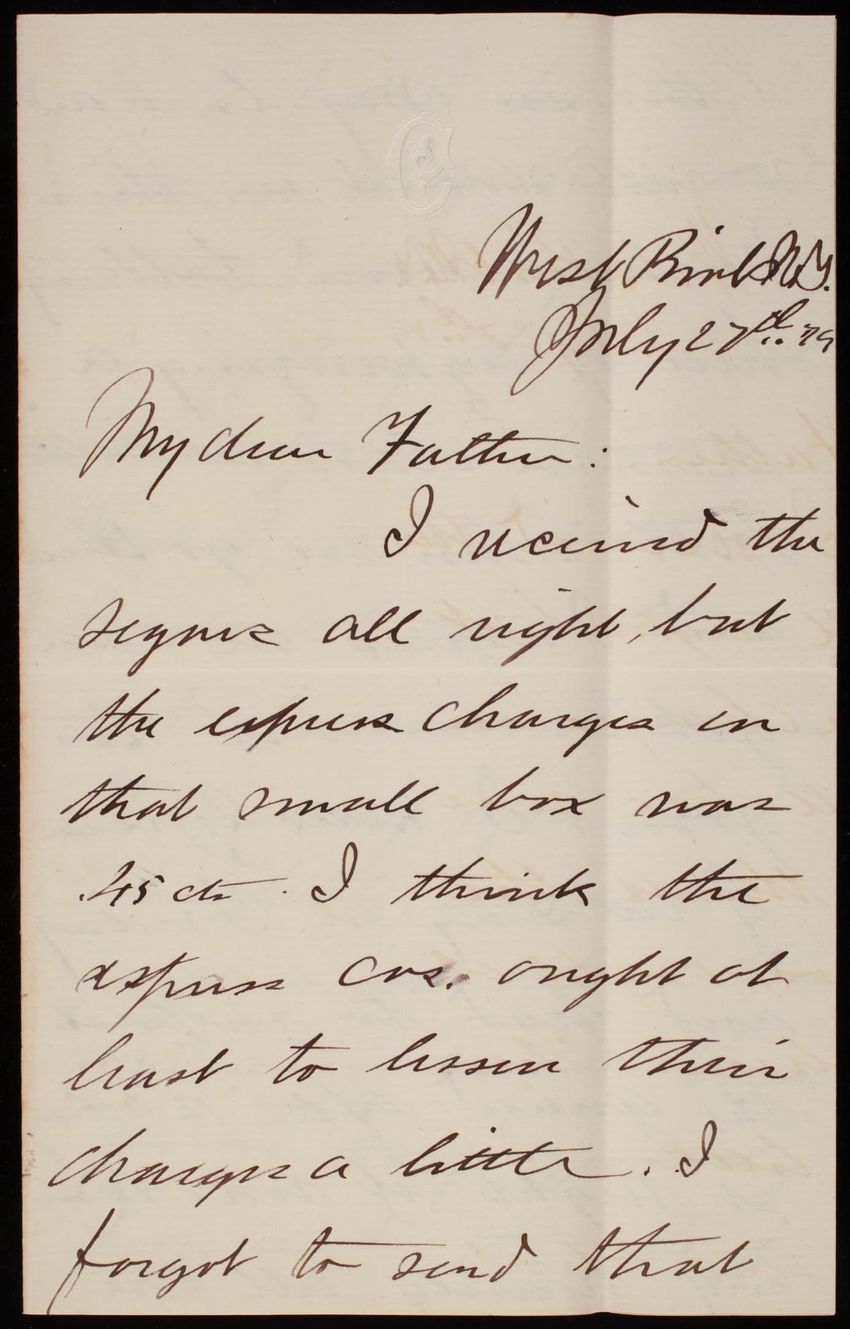 West Point N.Y.
July 27th.. 79
My dear Father:
I received the
segars all right, but
the express charges on
that small box was
.45 cts. I think the
express cos. ought at
least to lessen their
charges a little. I
forgot to send that